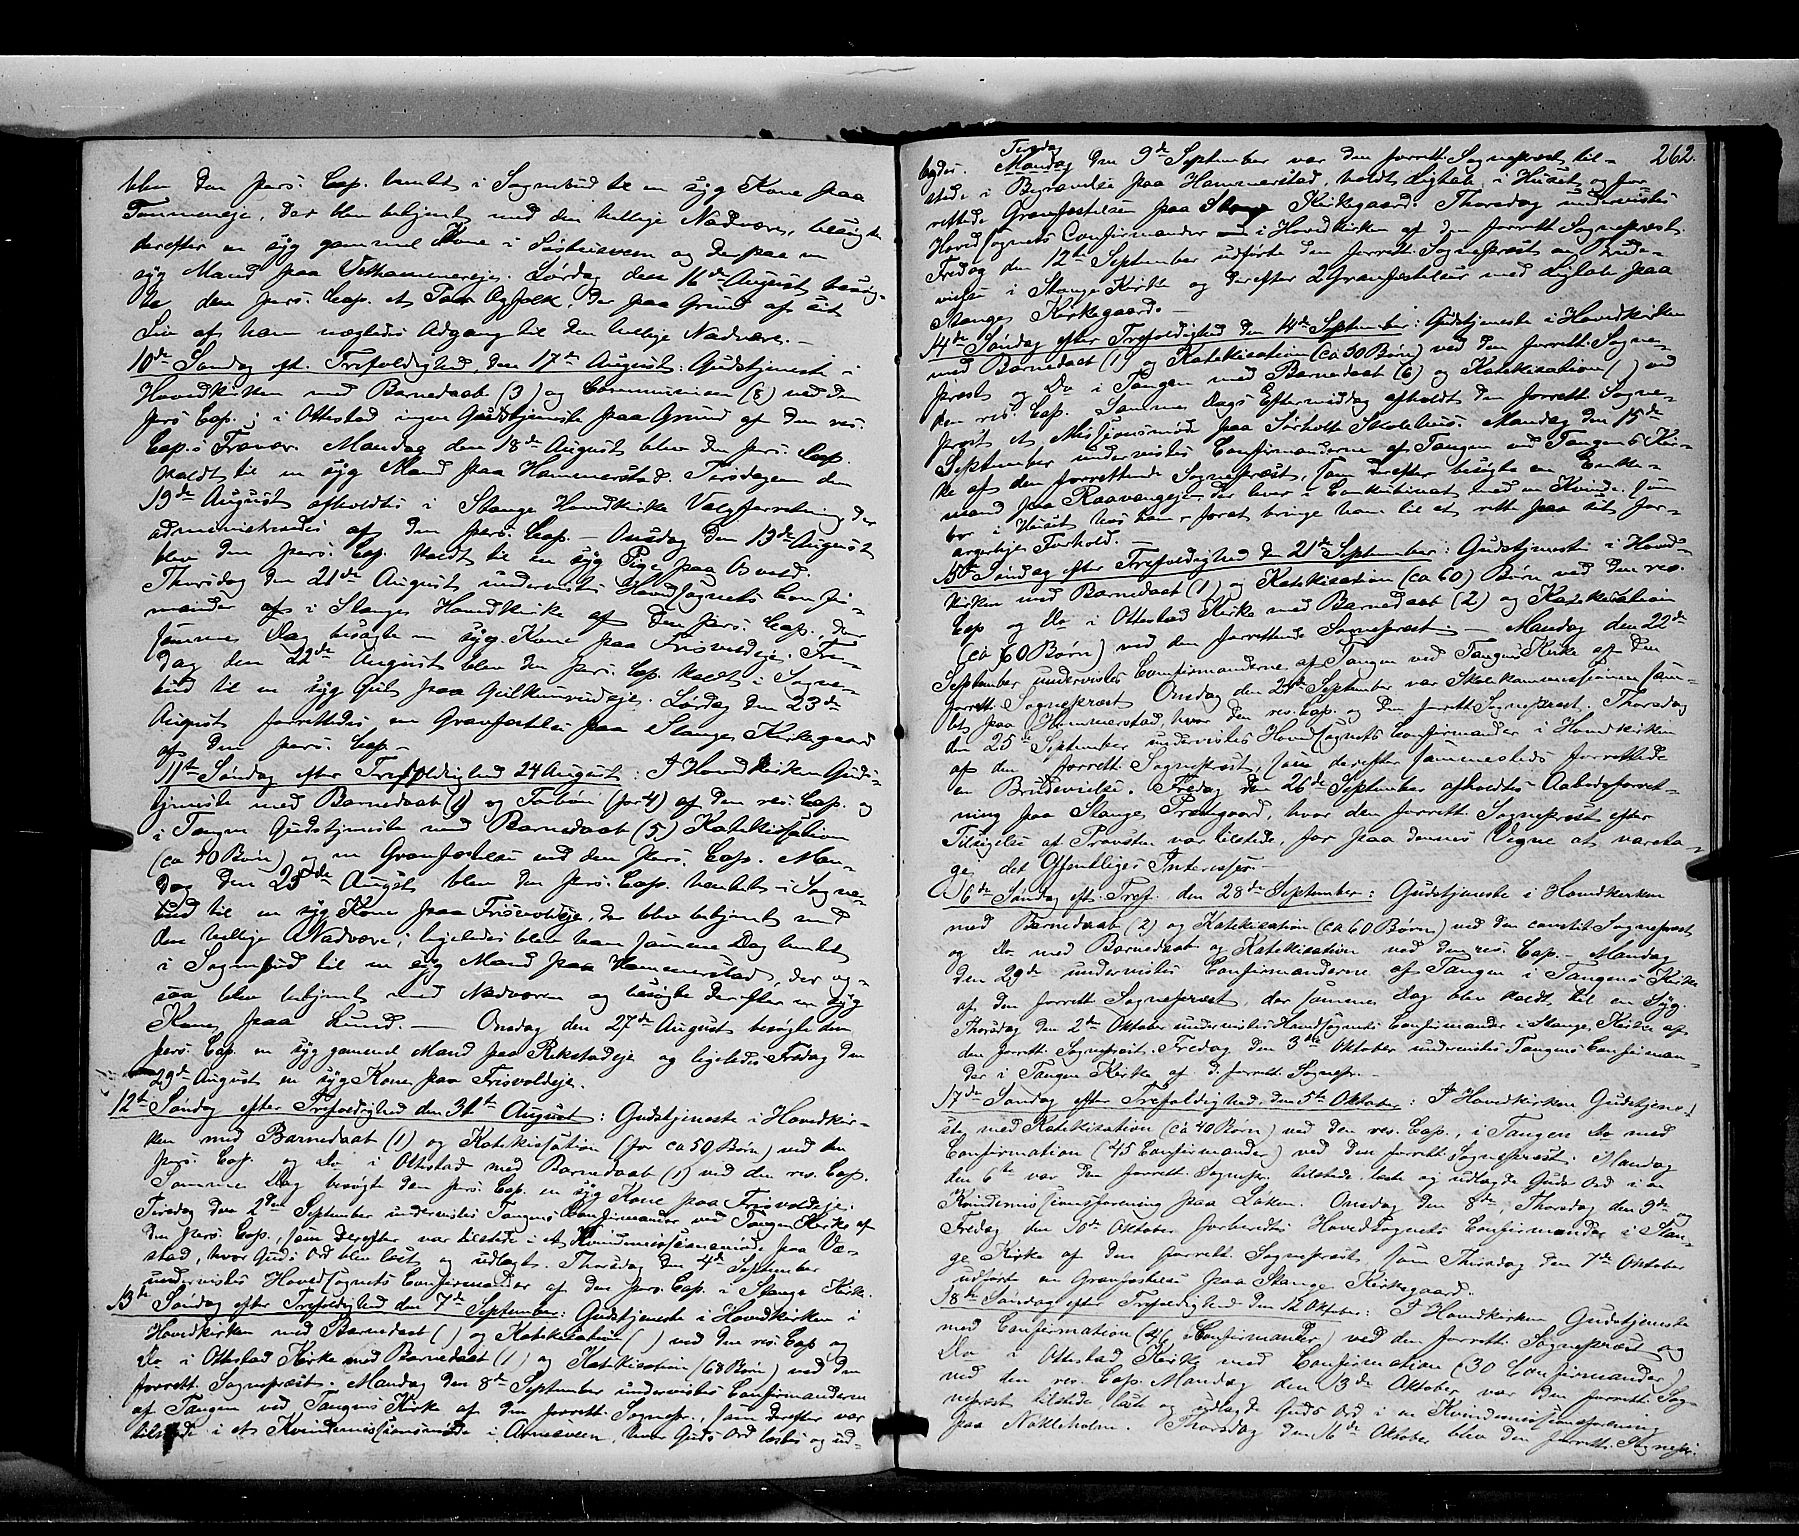 blev den pers. Cap. hentet i Sognebud til en syg Kone paa
Tommereje, der blev betjent med den hellige Nadvere, besøgte
derefter en syg gammel Kone i og derpaa en
syg Mand paa Vethammereje. Lørdag den 16de August besøg-
te den pers. Cap. et Par Ægfolk, der paa Grund af sit
Liv af ham negtedes Adgang til den hellige Nadvere. –
10de Søndag eft. Trefoldighed den 17de August: Gudstjeneste i
Hovedkirken med Barnedaab (3) og Communion (8) ved den
pers. Cap.; i Ottestad ingen Gudstjeneste paa Grund af den res.
Cap.s Fravær. Mandag den 18de August blev den pers. Cap.
kaldt til en syg Mand paa Hammerstad. Tirsdagen den
19de August afholdtes i Stange Hovedkirke Valgforretning, der
administreredes af den pers. Cap. – Onsdag den 19de August
blev den pers. Cap. kaldt til en syg Pige paa Asveld.
Thorsdag den 21de August undervistes Hovedsognets Confir-
mander af i Stange Hovedkirke af den pers. Cap., der
samme Dag besøgte en syg Kone paa Frisvoldeje. Fre-
dag den 22de August blev den pers. Cap. kaldt i Sogne-
bud til en syg paa Lørdag den 23de
August forrettedes en Gravfæstelse paa Stange Kirkegaard
af den pers. Cap. –
11te Søndag efter Trefoldighed 24 August: I Hovedkirken Guds-
tjeneste med Barnedaab (1) og Forbøn (for 4) af den res. Cap. og
i Tangen Gudstjeneste med Barnedaab (5) Katekisation
(ca 70 Børn) og en Gravfæstelse ved den pers. Cap. Man-
dag den 25de August blev den pers. Cap. hentet i Sogne-
bud til en syg Kone paa Frisvoldeje, der blev betjent med
den hellige Nadvere; ligeledes blev han samme Dag hentet
i Sognebud til en syg Mand paa Hammerstad, der og-
saa blev betjent med Nadveren og besøgte derefter en syg
Kone paa Lund. – Onsdag den 27de August besøgte den
pers. Cap. en syg gammel Mand paa Rekstadeje og ligeledes Fredag den
29de August en syg Kone paa Frisvoldeje.
12te Søndag efter Trefoldighed den 31te August: Gudstjeneste i Hovedkir-
ken med Barnedaab (1) og Katekisation (for ca 50 Børn) ved den
pers. Cap. og Do i Ottestad med Barnedaab (1) ved den res. Cap.
Samme Dag besøgte den pers. Cap. en syg Kone paa Frisvoldeje.
Tirsdag den 2den September undervistes Tangens Confirmander ved Tangen Kirke af
den pers. Cap., som derefter var tilstede i et Kvindemissionsmøde paa Va-
stad, hvor Guds Ord blev læst og udlagt. Thorsdag den 4de September
undervistes Hovedsognets Confirmander af den pers. Cap. i Stange Kirke.
13de Søndag efter Trefoldighed den 7de September: Gudstjeneste i Hovedkirken i
Hovedkirken med Barnedaab ( ) og Katekisation ( ) ved den res. Cap. og
Do i Ottestad Kirke med Barnedaab (1) og Katekisation (68 Børn) ved den
forrett. Sognepræst. Mandag den 8de September undervistes Confirmanderne
af Tangen ved Tangens Kirke af den forrett. Sognepr., som derefter var
tilstede i et Kvindemissionsmøde i Arneseven, hvor Guds Ord læstes og ud-
262.
Tirsdag
lagdes. Mandag den 9de September var den forrett. Sognepræst til-
stede i Begravelse paa Hammerstad, holdt Ligtale i Huset og for-
rettede Gravfæstelsen paa Stange Kirkegaard. Thorsdag undervistes
Hovedsognets Confirmander i Hovedkirken af den forrett. Sognepræst.
Fredag den 12te September udførte den forrett. Sognepræst en Brude-
vielse i Stange Kirke og derefter 2 Gravfæstelser med Ligtale paa
Stange Kirkegaard. –
14de Søndag efter Trefoldighed den 14de September: Gudstjeneste i Hovedkirken
med Barnedaab (1) og Katekisation (ca 50 Børn) ved den forrett. Sogne-
præst og Do i Tangen med Barnedaab (6) og Katekisation ( ) ved
den res. Cap. Samme Dags Eftermiddag afholdt den forrett. Sogne-
præst et Missionsmøde paa Sørholte Skolehus. Mandag den 15de
September undervistes Confirmanderne af Tangen ved Tangens Kir-
ke af den forrettende Sognepræst, som derefter besøgte en Enke-
mand paa Raavangeje, der lever i Conkubinat med en Kvinde, som
bor i Huset hos ham, for at bringe ham til at rett paa sit for-
argerlige Forhold. –
15de Søndag efter Trefoldighed den 21de September: Gudstjeneste i Hoved-
kirken med Barnedaab (1) og Katekisation (ca 60) Børn ved den res.
Cap og Do i Ottestad Kirke med Barnedaab (2) og Katekisation
(ca 60 Børn) ved den forrettende Sognepræst. – Mandag den 22de
September undervistes Confirmanderne af Tangen ved Tangens Kirke af den
forrett. Sognepræst. Onsdag den 24de September var Skolekommissionen sam-
let paa Hammerstad, hvor den res. Cap. og den forrett. Sognepræst. Thorsdag
den 25de September undervistes Hovedsognets Confirmander i Hovedkirken
af den forrett. Sognepræst, som derefter sammesteds forrettede
en Brudevielse. Fredag den 26de September afholdtes Aabodsforret-
ning paa Stange Prestgaard, hvor den forrett. Sognepræst efter
Tilsigelse af Provsten var tilstede, for paa dennes Vegne at vareta-
ge det Offentliges Interesser.
16de Søndag eft. Tref. den 28de September: Gudstjeneste i Hovedkirken
med Barnedaab (2) og Katekisation (ca 60 Børn) ved den constit. Sognepræst
og Do med Barnedaab og Katekisation ved den res. Cap. – Mandag
den 29de undervistes Confirmanderne af Tangen i Tangens Kirke
af den forrett. Sognepræst, der samme Dag blev kaldt til en Syg.
Thorsdag den 2den Oktober undervistes Hovedsognets Confirmander i Stange Kirke af
den forrett. Sognepræst. Fredag den 3die Oktober undervistes Tangens Confirman-
der i Tangen Kirke af d. forrett. Sognepr. –
17de Søndag efter Trefoldighed, den 5te Oktober: I Hovedkirken Gudstjene-
ste med Katekisation (ca 40 Børn) ved den res. Cap., i Tangen Do med
Confirmation (45 Confirmander) ved den forrett. Sognepræst. Mandag
den 6te var den forrett. Sognepr. tilstede, læste og udlagde Guds Ord i en
Kvindemissionsforening paa Løken. Onsdag den 8de, Thorsdag den 9de og
Fredag den 10de Oktober forberedtes Hovedsognets Confirmander i Stan-
ge Kirke af den forrett. Sognepræst, som Thirsdag den 7de Oktober
udførte en Gravfæstelse paa Stange Kirkegaard.
18de Søndag efter Trefoldighed den 12 Oktober: I Hovedkirken Gudstjeneste
med Confirmation (46 Confirmander) ved den forrett. Sognepræst og
Do i Ottestad Kirke med Confirmation (30 Confirmander)
ved den res. Cap. Mandag den 13de Oktober var den forrett. Sog-
nepræst tilstede, læste og udlagde Guds Ord i en Kvindemissionsforening
paa Nøkleholm. Thorsdag den 16de Oktober blev den forrett. Sognepr.